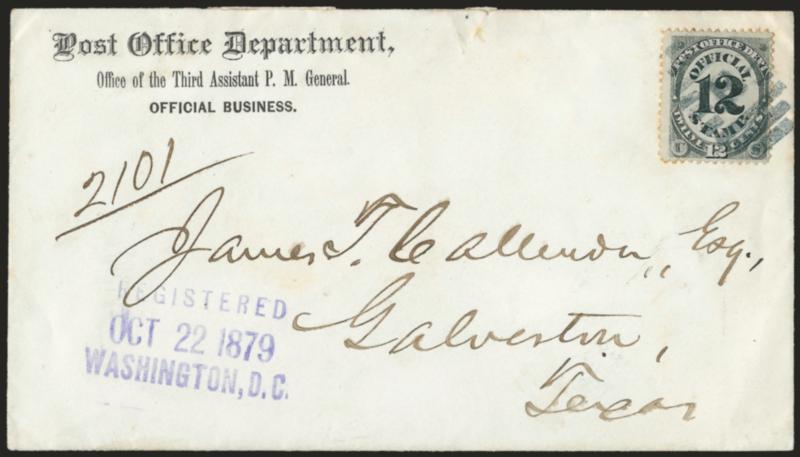 Post Office Department,
Office of the Third Assistant P. M. General.
OFFICIAL BUSINESS.
POST OFFICE DEPT.
OFFICIAL
12
STAMP
TWELVE 12 CENTS
U S
2101
James T. Callendar, Esq.,
Galveston,
Texas
REGISTERED
OCT 22 1879
WASHINGTON, D.C.